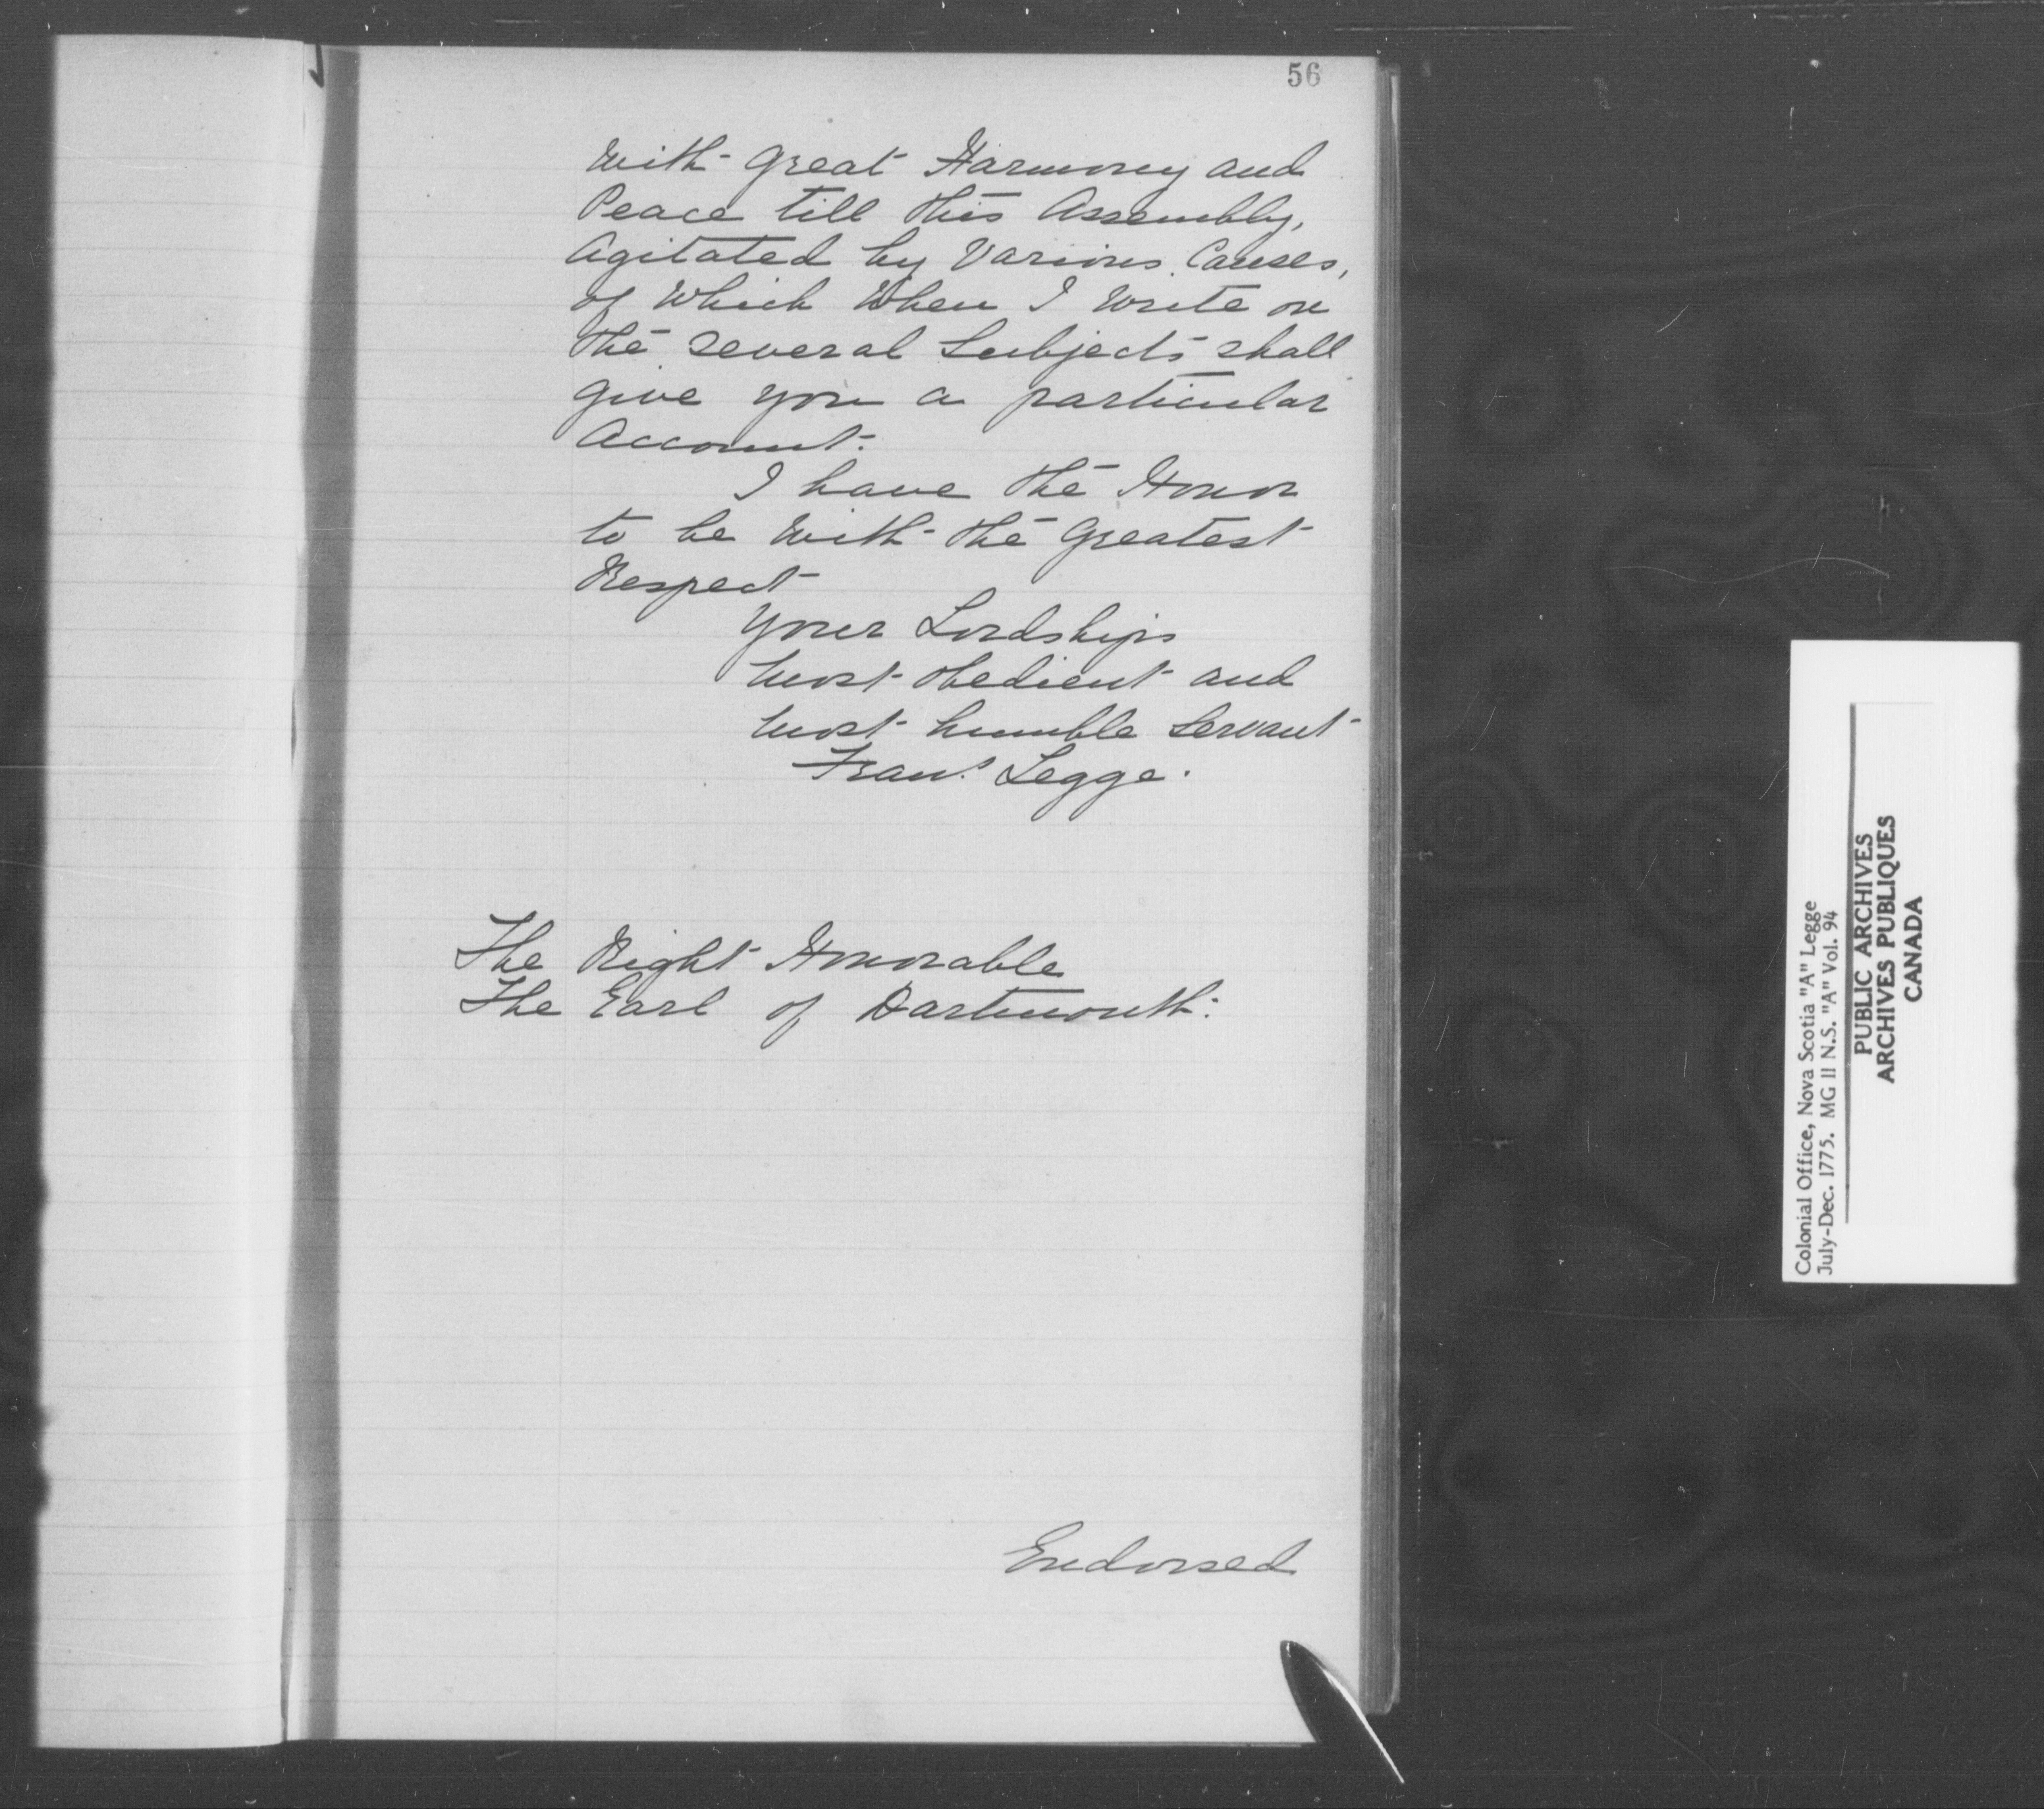 56
With great Harmony and
Peace till this Assembly,
agitated by Various Causes,
of Which When I Write on
the several Subjects shall
give you a particular
Account.
I have the Honor
to be With the greatest
Respect
Your Lordships
most obedient and
most humble Servant
Frans Legge.
The Right Honorable
The Earl of Dartmouth.
Endorsed
Colonial Office, Nova Scotia "A" Legge
July-Dec. 1775. MG 11 N.S. "A" Vol. 94
PUBLIC ARCHIVES
ARCHIVES PUBLIQUES
CANADA